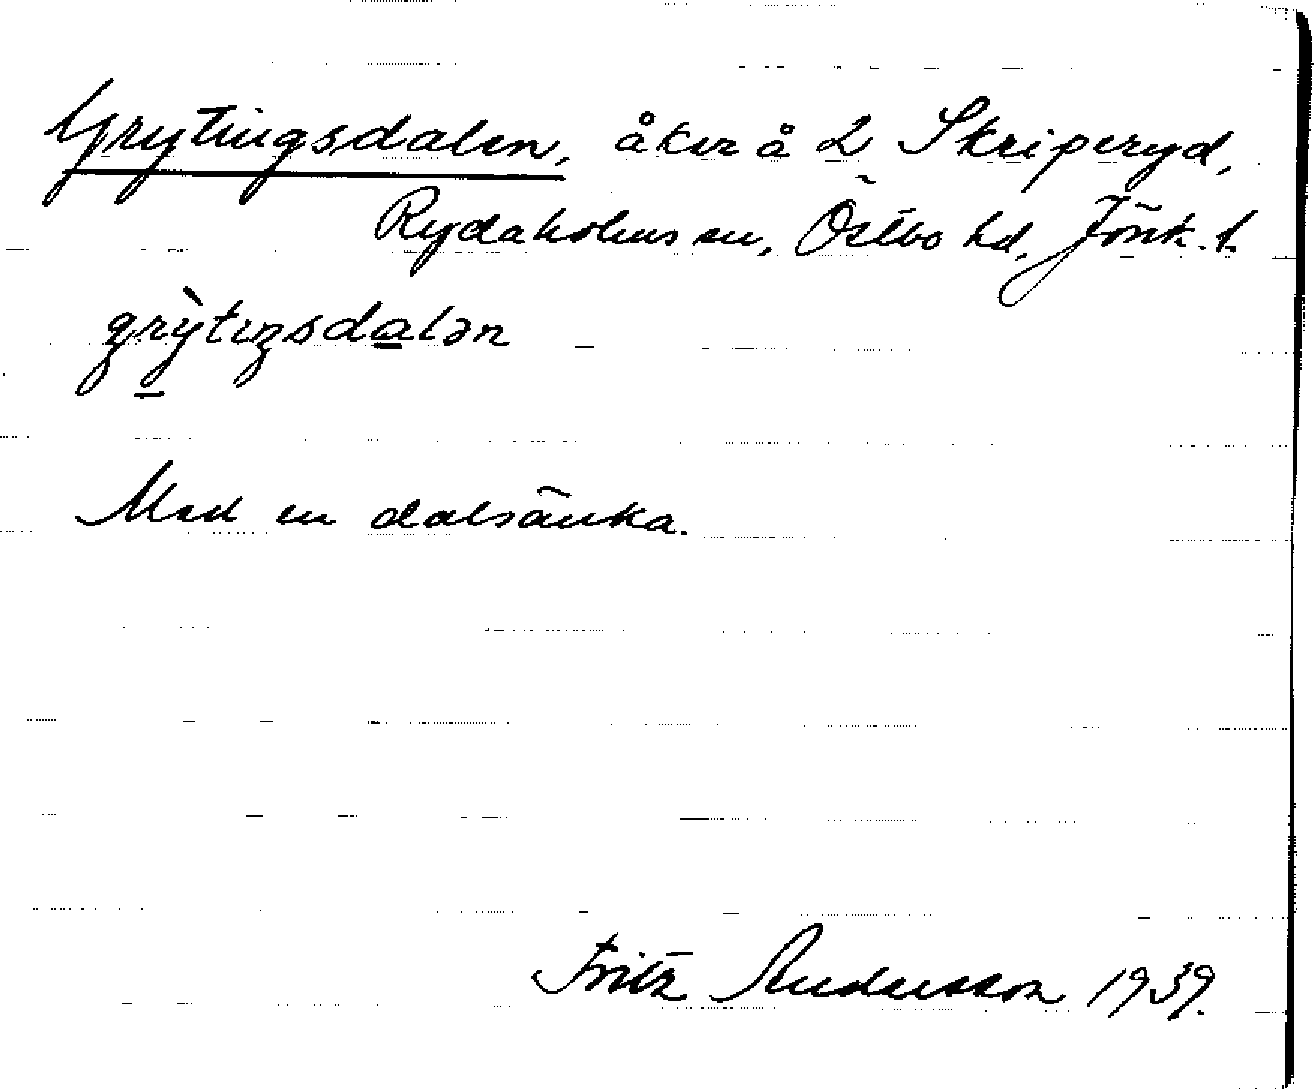 Grytingsdalen, åker å 2 Skriperyd,
Rydaholms sn, Östbo hd, Jönk. l.
grỳtıŋsdalən
Med en dalsänka.
Fritz Andersson 1939.